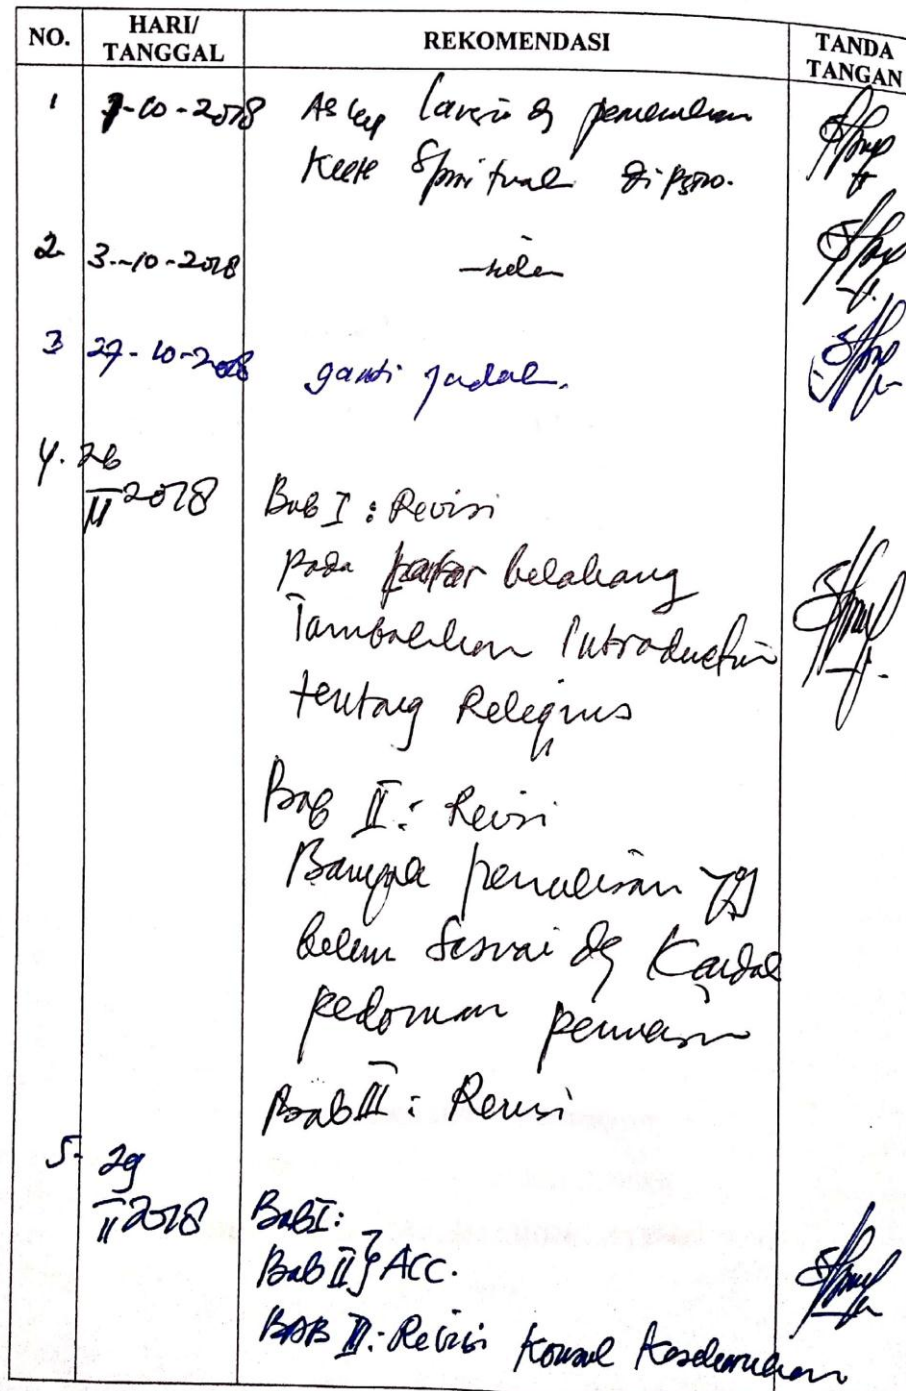 NO. HARI/ TANGGAL REKOMENDASI TANDA TANGAN
1 1-10-2018 Askep lansia dg pemenuhan
Spiritual di pstw.
2. 3-10-2018
3 27-10-2018 ganti judul.
4. 26
II 2018 Bab I : Revisi
pada latar belakang
Tambahkan Introduction
tentang Relegius
Bab II : Revisi
Banyak penulisan yg
belum sesuai dg
pedoman penulisan
Bab III : Revisi
5. 29
II 2018 Bab I :
Bab II } ACC.
BAB III : Revisi Konsul Keseluruhan